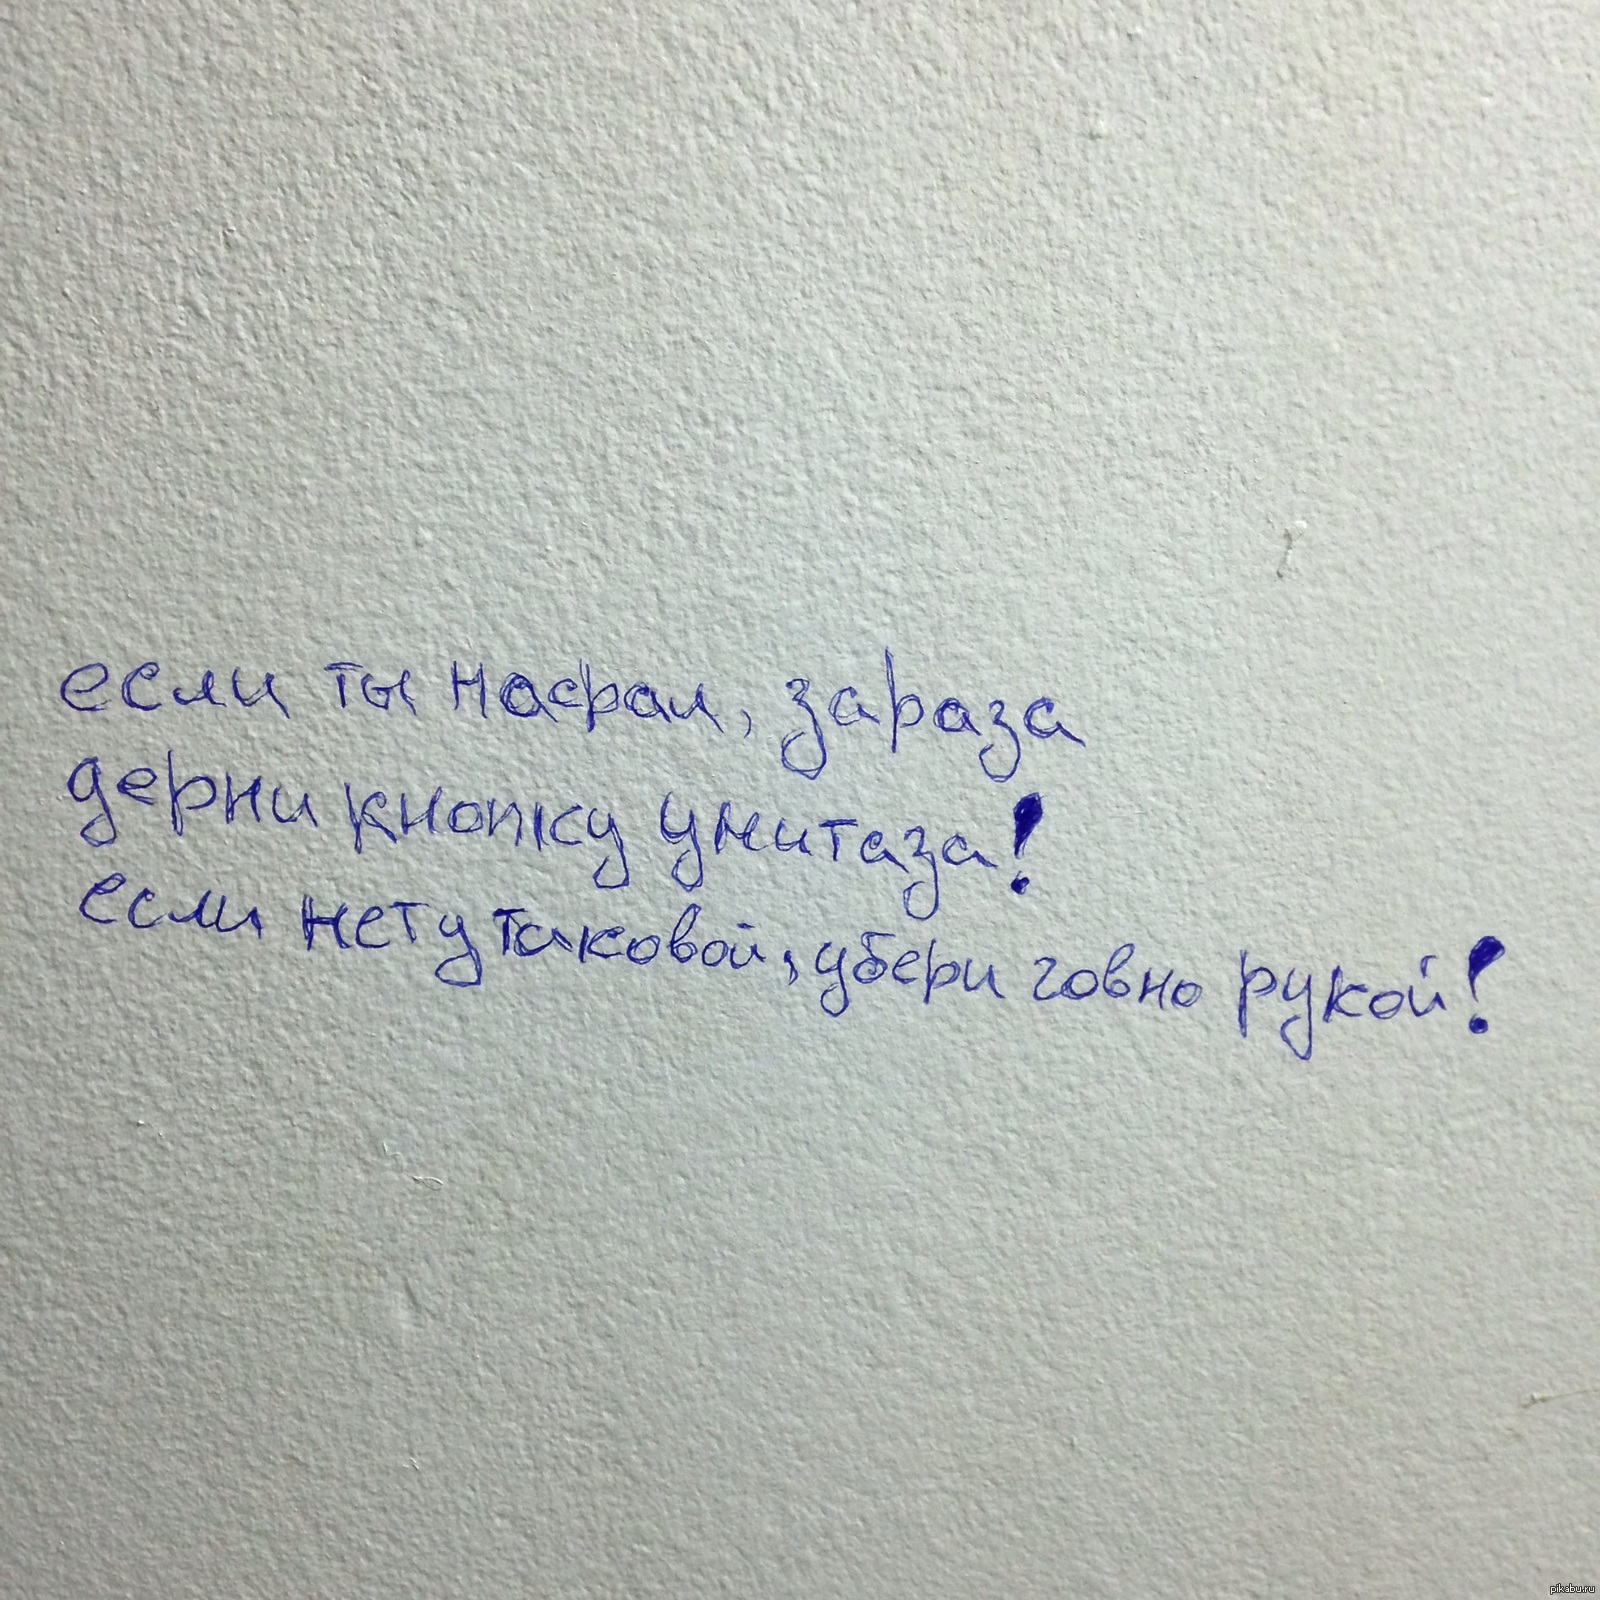 если ты насрал, зараза
дерни кнопку унитаза!
если нету таковой, убери говно рукой!
pikabu.ru